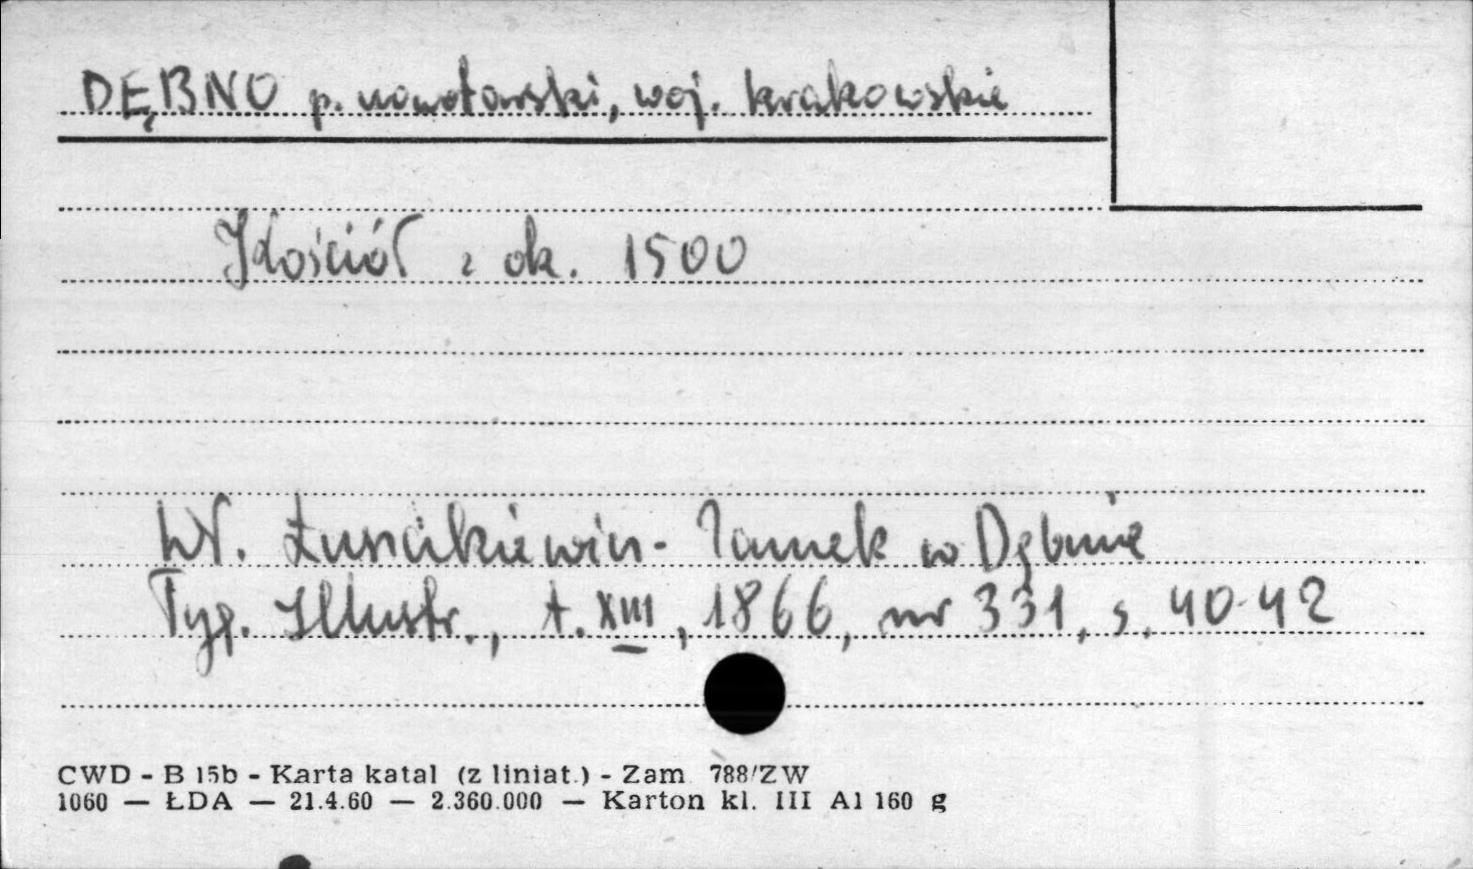 DĘBNO p. nowotarski, woj. krakowskie
Kościół z ok. 1500
Wł. Łuszczkiewicz - Zamek w Dębnie
Tyg. Illustr., t. XIII, 1866, nr 331, s. 40-42
CWD - B 15b - Karta katal (z liniat.) - Zam 788/ZW
1060 — ŁDA — 21.4.60 — 2.360.000 — Karton kl. III A1 160 g